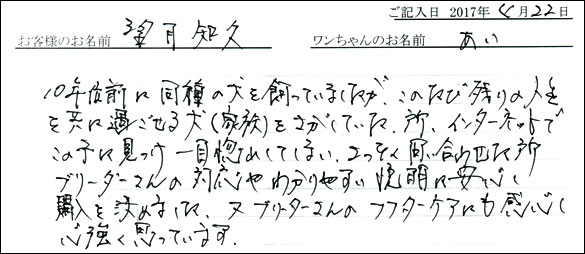 ご記入日 2017年 4月22日
お客様のお名前 望月 知久 ワンちゃんのお名前 あい
10年位前に同種の犬を飼っていましたが、このたび残りの人生
を共に過ごせる犬(家族)をさがしていた所、インターネットで
この子に見つけ一目惚れしてしまい、さっそく問い合わせた所
ブリーダーさんの対応やわかりやすい説明に安心し
購入を決めました、又ブリーダーさんのアフターケアにも感心し
心強く思っています。